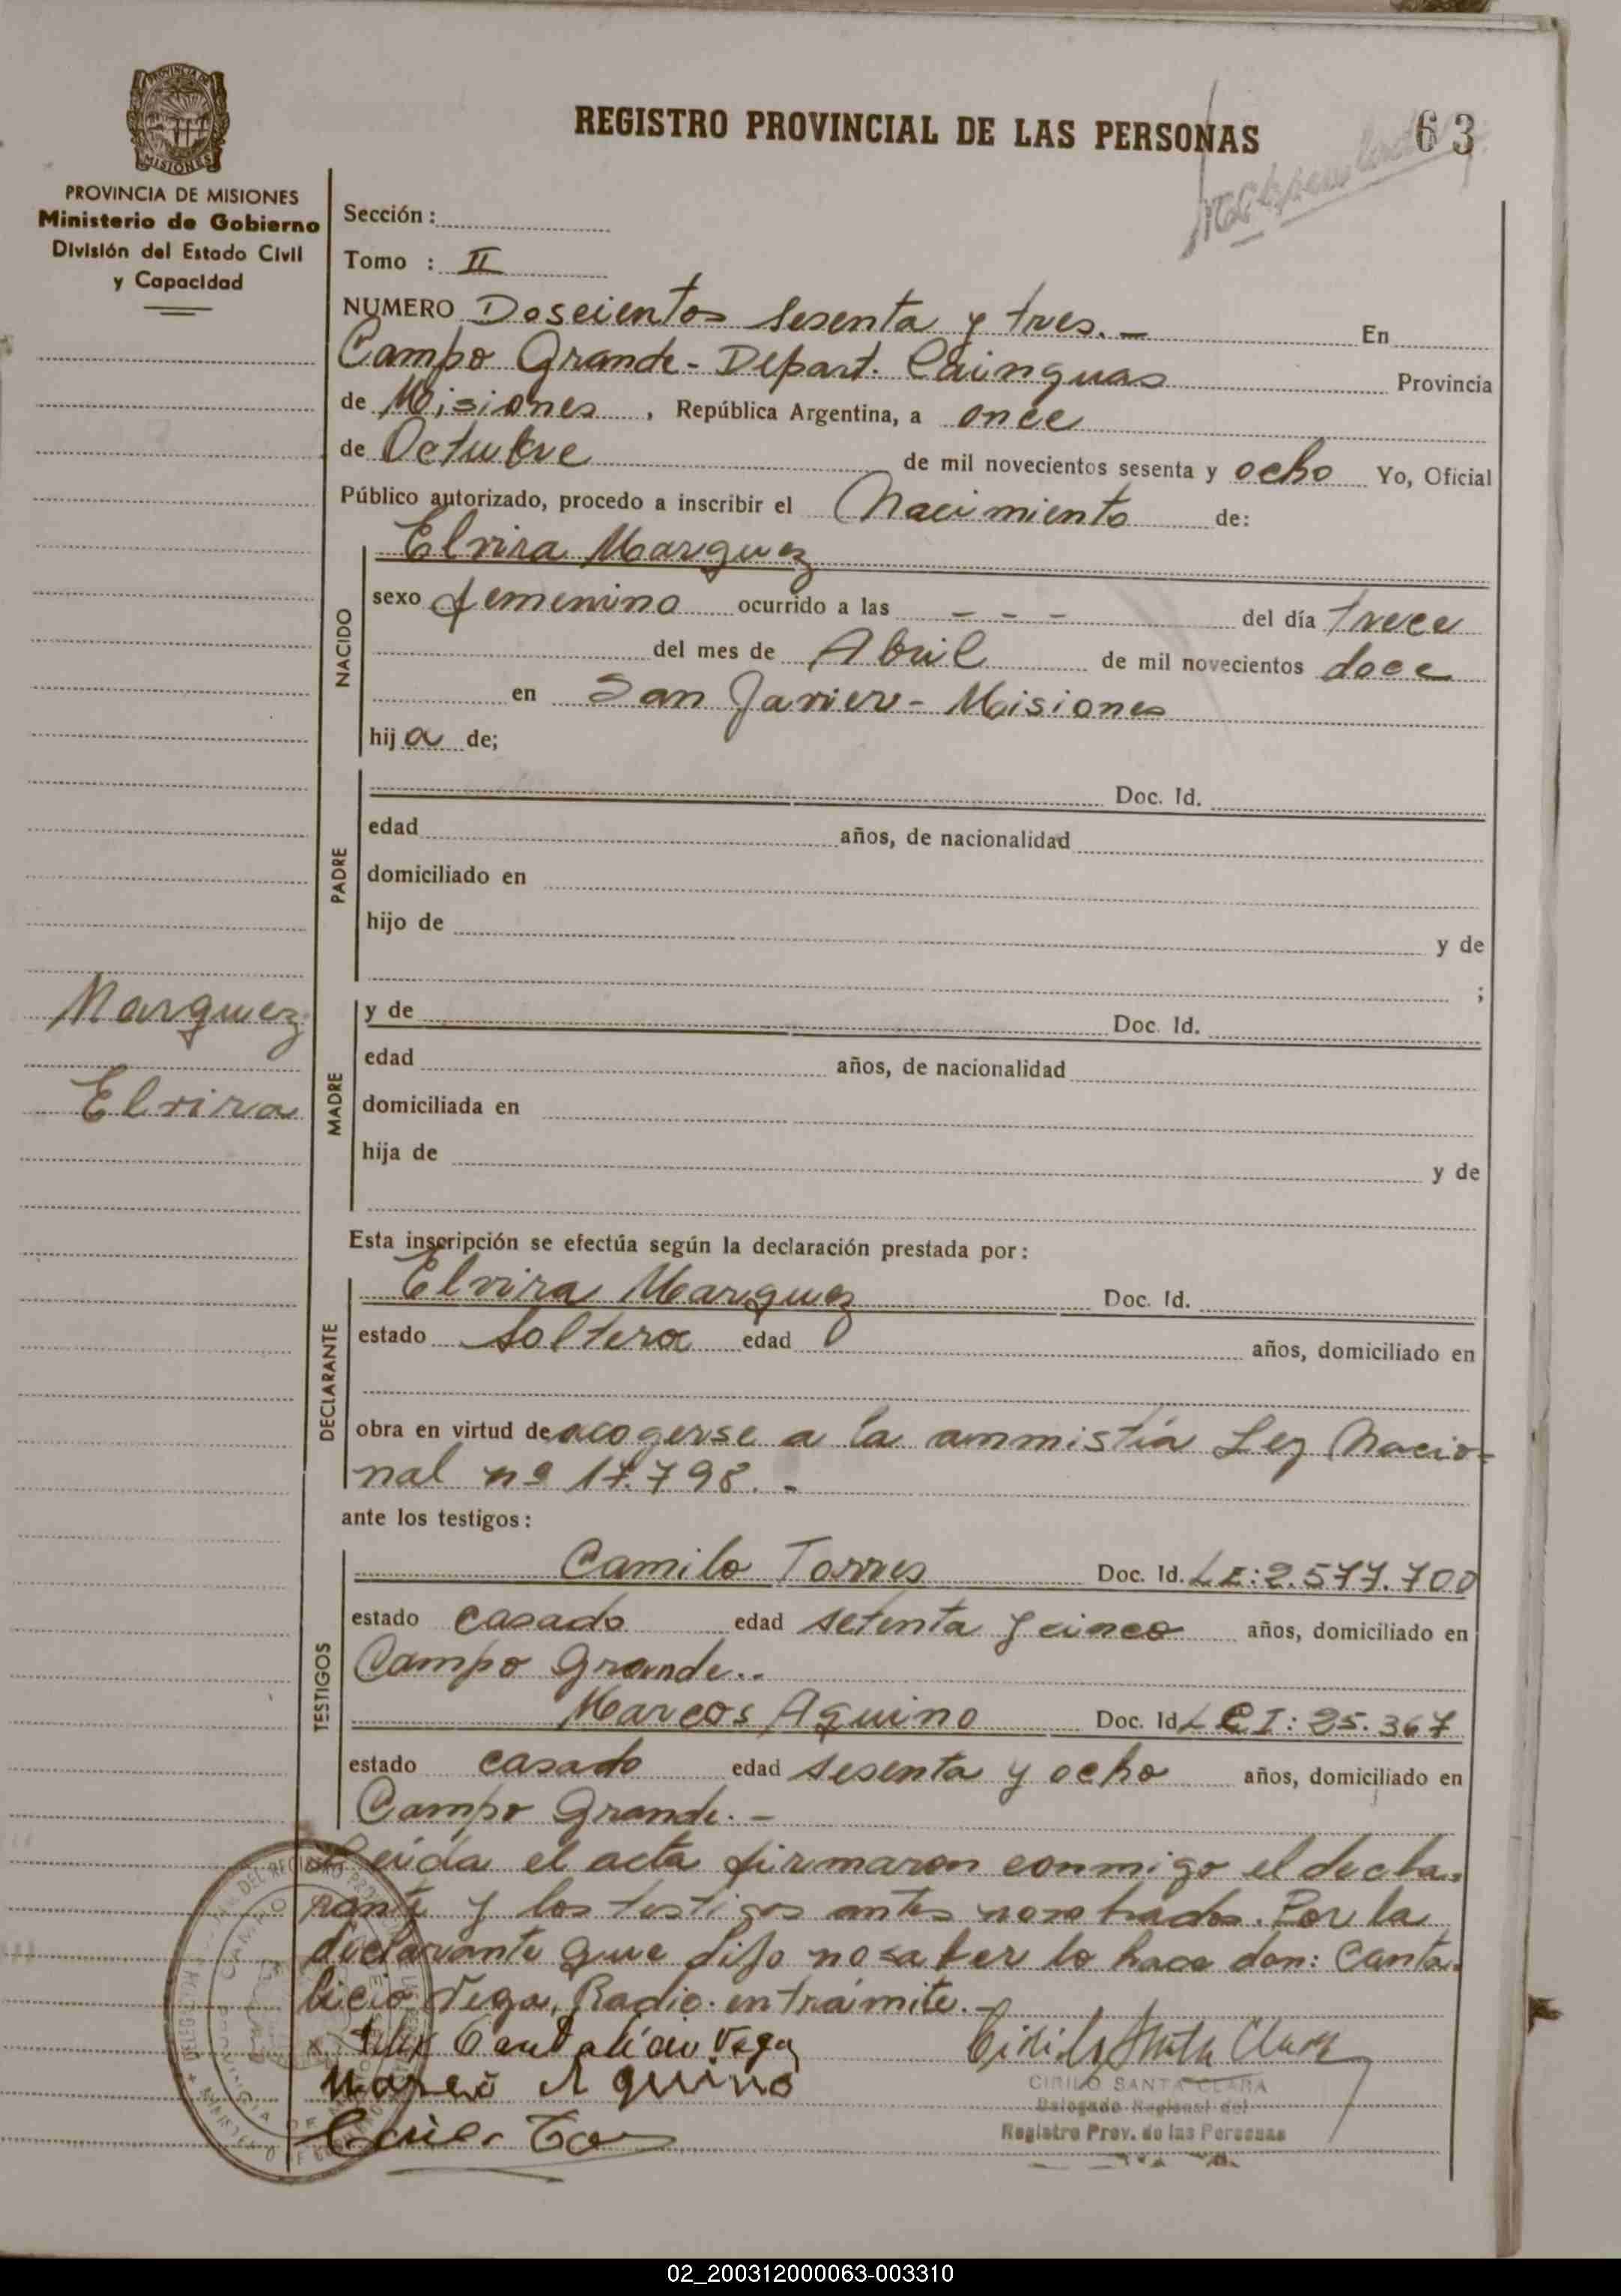 REGISTRO PROVINCIAL DE LAS PERSONAS
63
PROVINCIA DE
MISIONES
PROVINCIA DE MISIONES
Ministerio de Gobierno
División del Estado Civil
y Capacidad
Sección :
Tomo : II
NUMERO Doscientos sesenta y tres. — En
Campo Grande - Depart. Cainguas Provincia
de Misiones, República Argentina, a once
de Octubre de mil novecientos sesenta y ocho Yo, Oficial
Público autorizado, procedo a inscribir el Nacimiento de:
NACIDO
Elvira Marquez
sexo femenino ocurrido a las - - - del día trece
del mes de Abril de mil novecientos doce
en San Javier - Misiones
hija de;
PADRE
Doc. Id.
edad años, de nacionalidad
domiciliado en
hijo de y de
;
Marquez
Elvira
MADRE
y de Doc. Id.
edad años, de nacionalidad
domiciliada en
hija de y de
Esta inscripción se efectúa según la declaración prestada por :
DECLARANTE
Elvira Marquez Doc. Id.
estado Soltera edad años, domiciliado en
obra en virtud de acogerse a la ammistía Ley Nacio-
nal nº 17.798. -
ante los testigos :
TESTIGOS
Camilo Torres Doc. Id. LE: 2.577.700
estado casado edad setenta y cinco años, domiciliado en
Campo Grande..
Marcos Aquino Doc. Id. I: 25.367
estado casado edad sesenta y ocho años, domiciliado en
Campo Grande. -
Leída el acta firmaron conmigo el decla-
rante y los testigos antes nombrados. Por la
declarante que dijo no saber lo hace don: Canta-
licio Vega, Radio. en trámite. -
Cantalicio Vega
Aquino
Cirilo Santa Clara
CIRILO SANTA CLARA
Delegado Regional del
Registro Prov. de las Personas
02_200312000063-003310